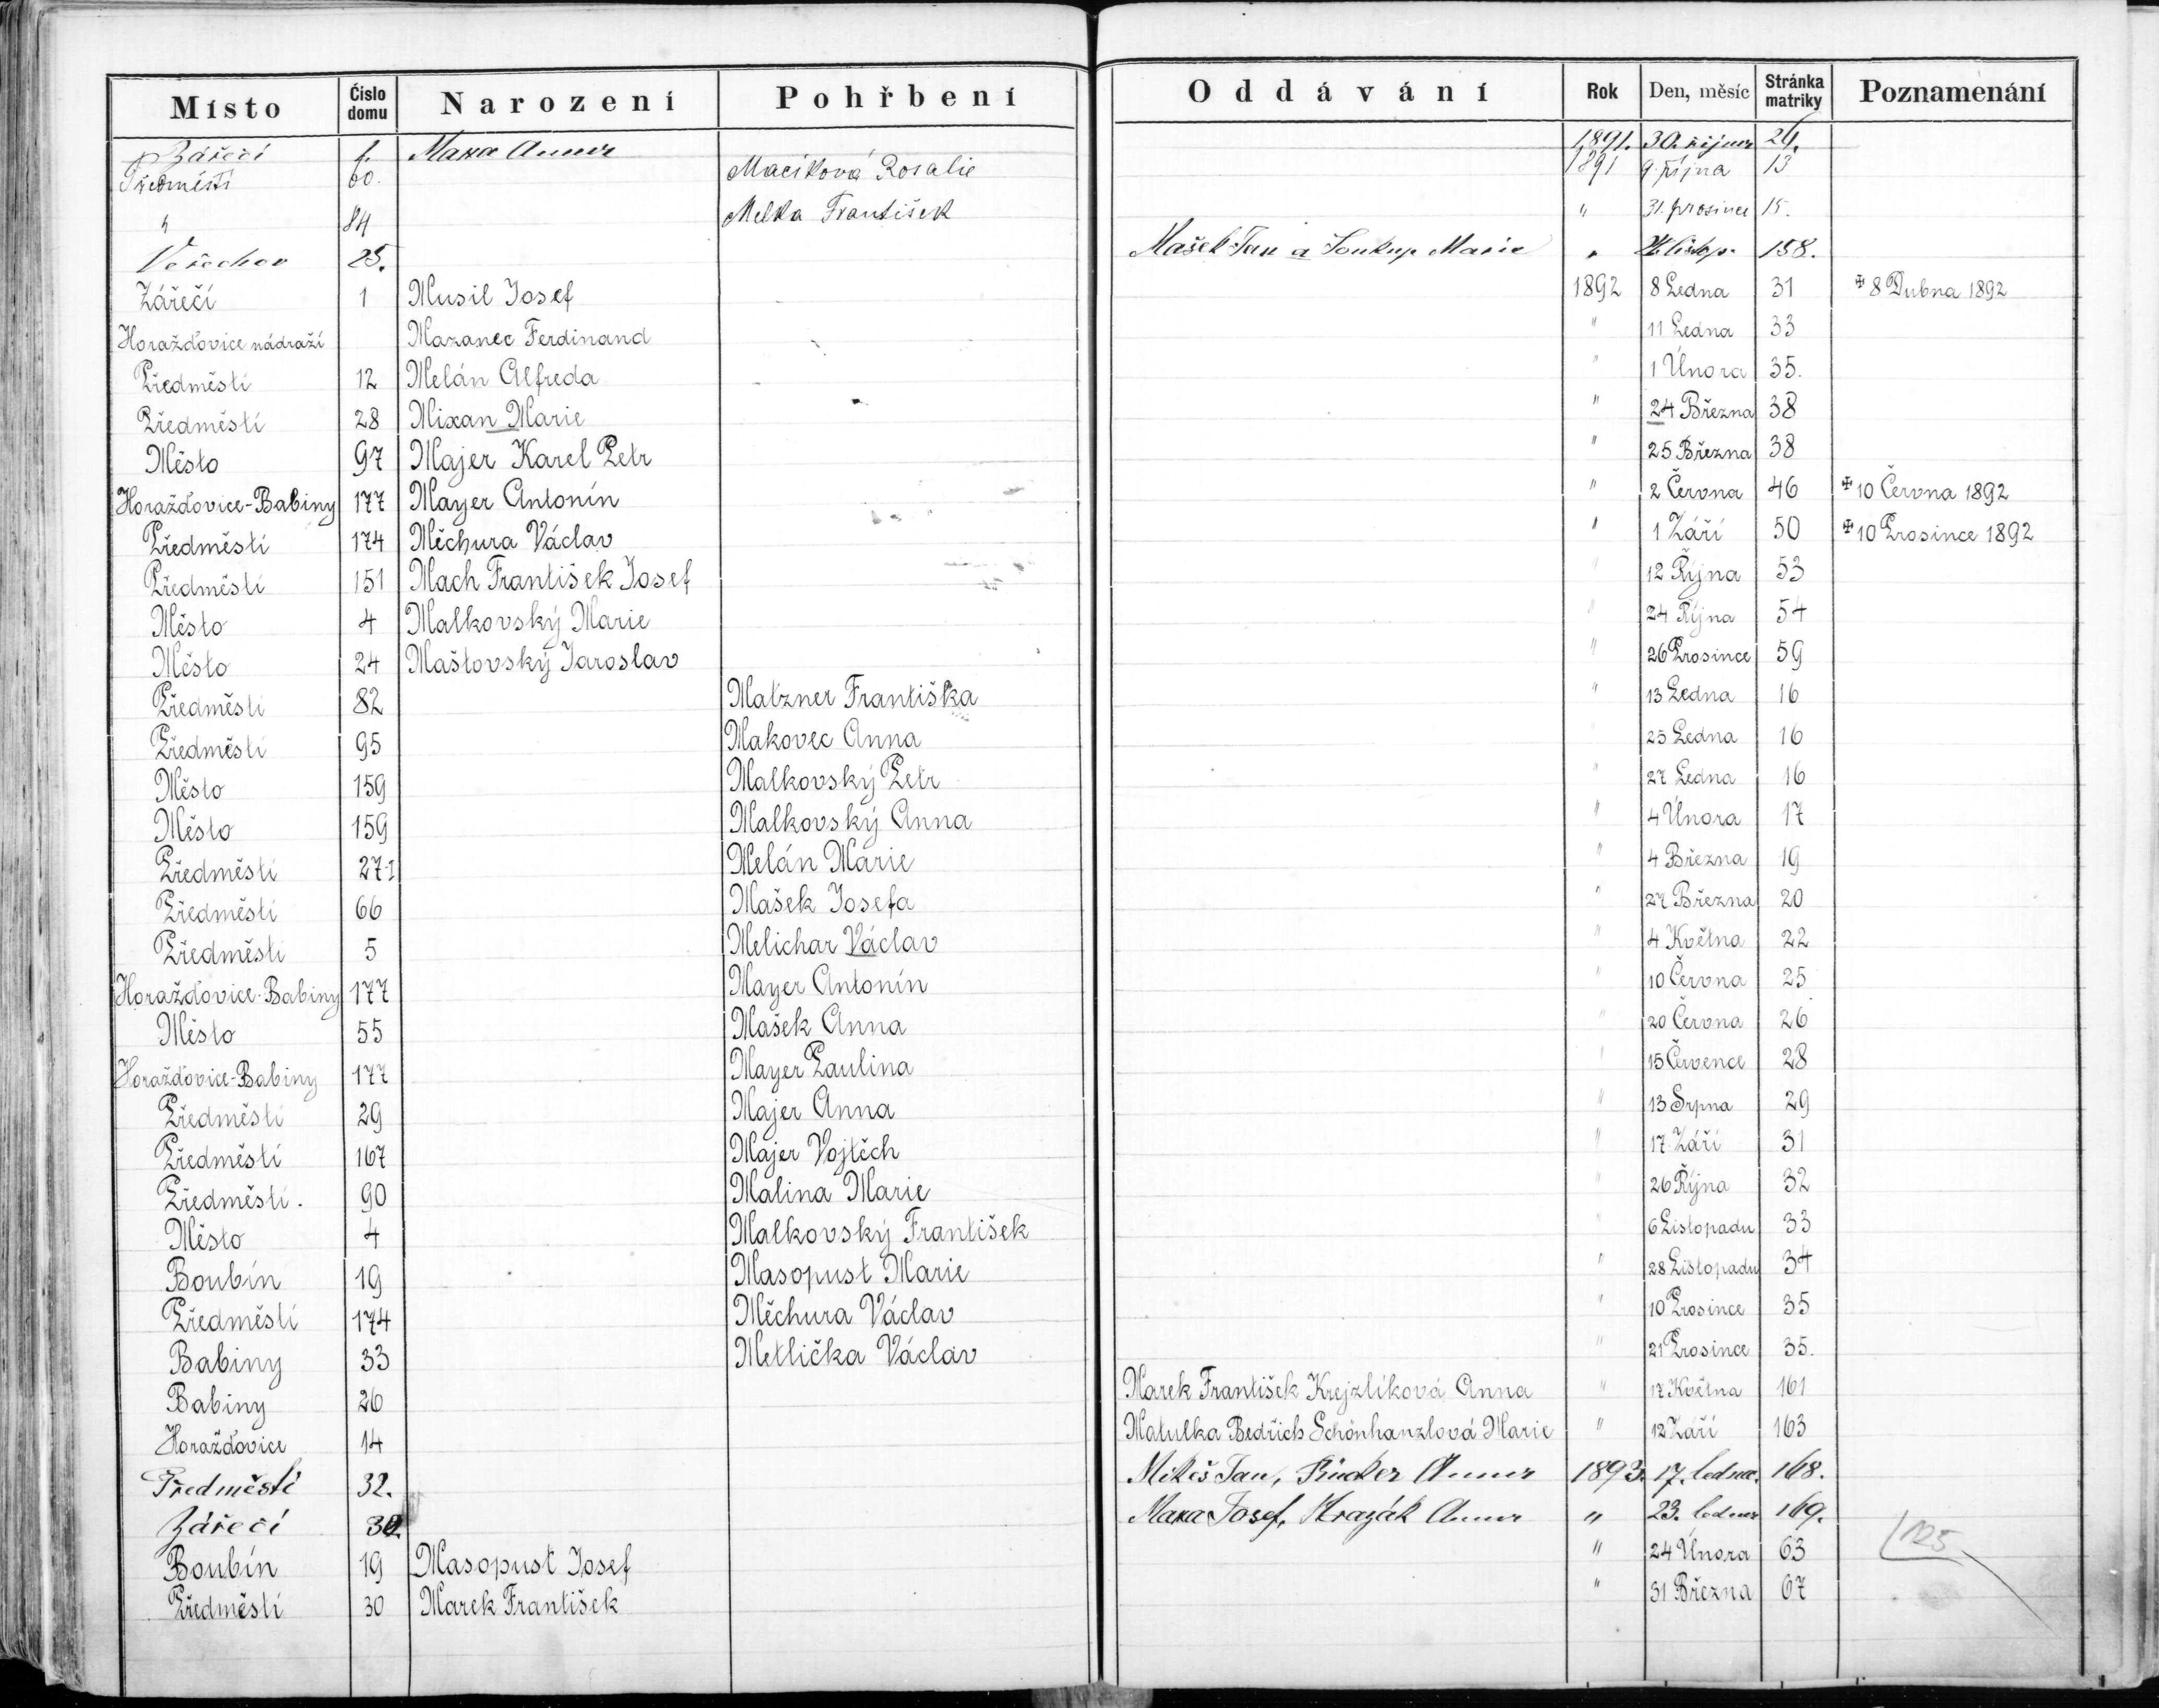 Místo Číslo domu Narození Pohřbení Oddávání Rok Den, měsíc Stránka matriky Poznamenání
Zářečí Maxa Anna 1891. 30. října 24.
Předměstí 60. Macíková Rosalie 1891 9. října 13
" 84 Melka František " 31. prosince 15.
Veřechov 25. Mašek Jan a Soukup Marie " listop. 158.
Zářečí 1 Musil Josef 1892 8 Ledna 31 ✠ 8 Dubna 1892
Horažďovice nádraží Mazanec Ferdinand " 11 Ledna 33
Předměstí 12 Melán Alfreda " 1 Února 35.
Předměstí 28 Mixan Marie " 24 Března 38
Město 97 Majer Karel Petr " 25 Března 38
Horažďovice-Babiny 177 Mayer Antonín " 2 Června 46 ✠ 10 Června 1892
Předměstí 174 Měchura Václav " 1 Září 50 ✠ 10 Prosince 1892
Předměstí 151 Mach František Josef " 12 Října 53
Město 4 Malkovský Marie " 24 Října 54
Město 24 Maštovský Jaroslav " 26 Prosince 59
Předměstí 82 Matzner Františka " 13 Ledna 16
Předměstí 95 Makovec Anna " 25 Ledna 16
Město 159 Malkovský Petr " 27 Ledna 16
Město 159 Malkovský Anna " 4 Února 17
Předměstí 27-I Melán Marie " 4 Března 19
Předměstí 66 Mašek Josefa " 27 Března 20
Předměstí 5 Melichar Václav " 4 Května 22
Horažďovice-Babiny 177 Mayer Antonín " 10 Června 25
Město 55 Mašek Anna " 20 Června 26
Horažďovice-Babiny 177 Mayer Paulina " 15 Července 28
Předměstí 29 Majer Anna " 13 Srpna 29
Předměstí 167 Majer Vojtěch " 17 Září 31
Předměstí. 90 Malina Marie " 26 Října 32
Město 4 Malkovský František " 6 Listopadu 33
Boubín 19 Masopust Marie " 28 Listopadu 34
Předměstí 174 Měchura Václav " 10 Prosince 35
Babiny 33 Metlička Václav " 21 Prosince 35.
Babiny 26 Marek František Krejzlíková Anna " 17 Května 161
Horažďovice 14 Matulka Bedřich Schönhanzlová Marie " 12 Září 163
Předměstí 32. Mikeš Jan, Anna 1893. 17. ledna. 168.
Zářečí Maxa Josef, Hrazák Anna " 23. ledna 169.
Boubín 19 Masopust Josef " 24 Února 63
Předměstí 30 Marek František " 31 Března 67
125